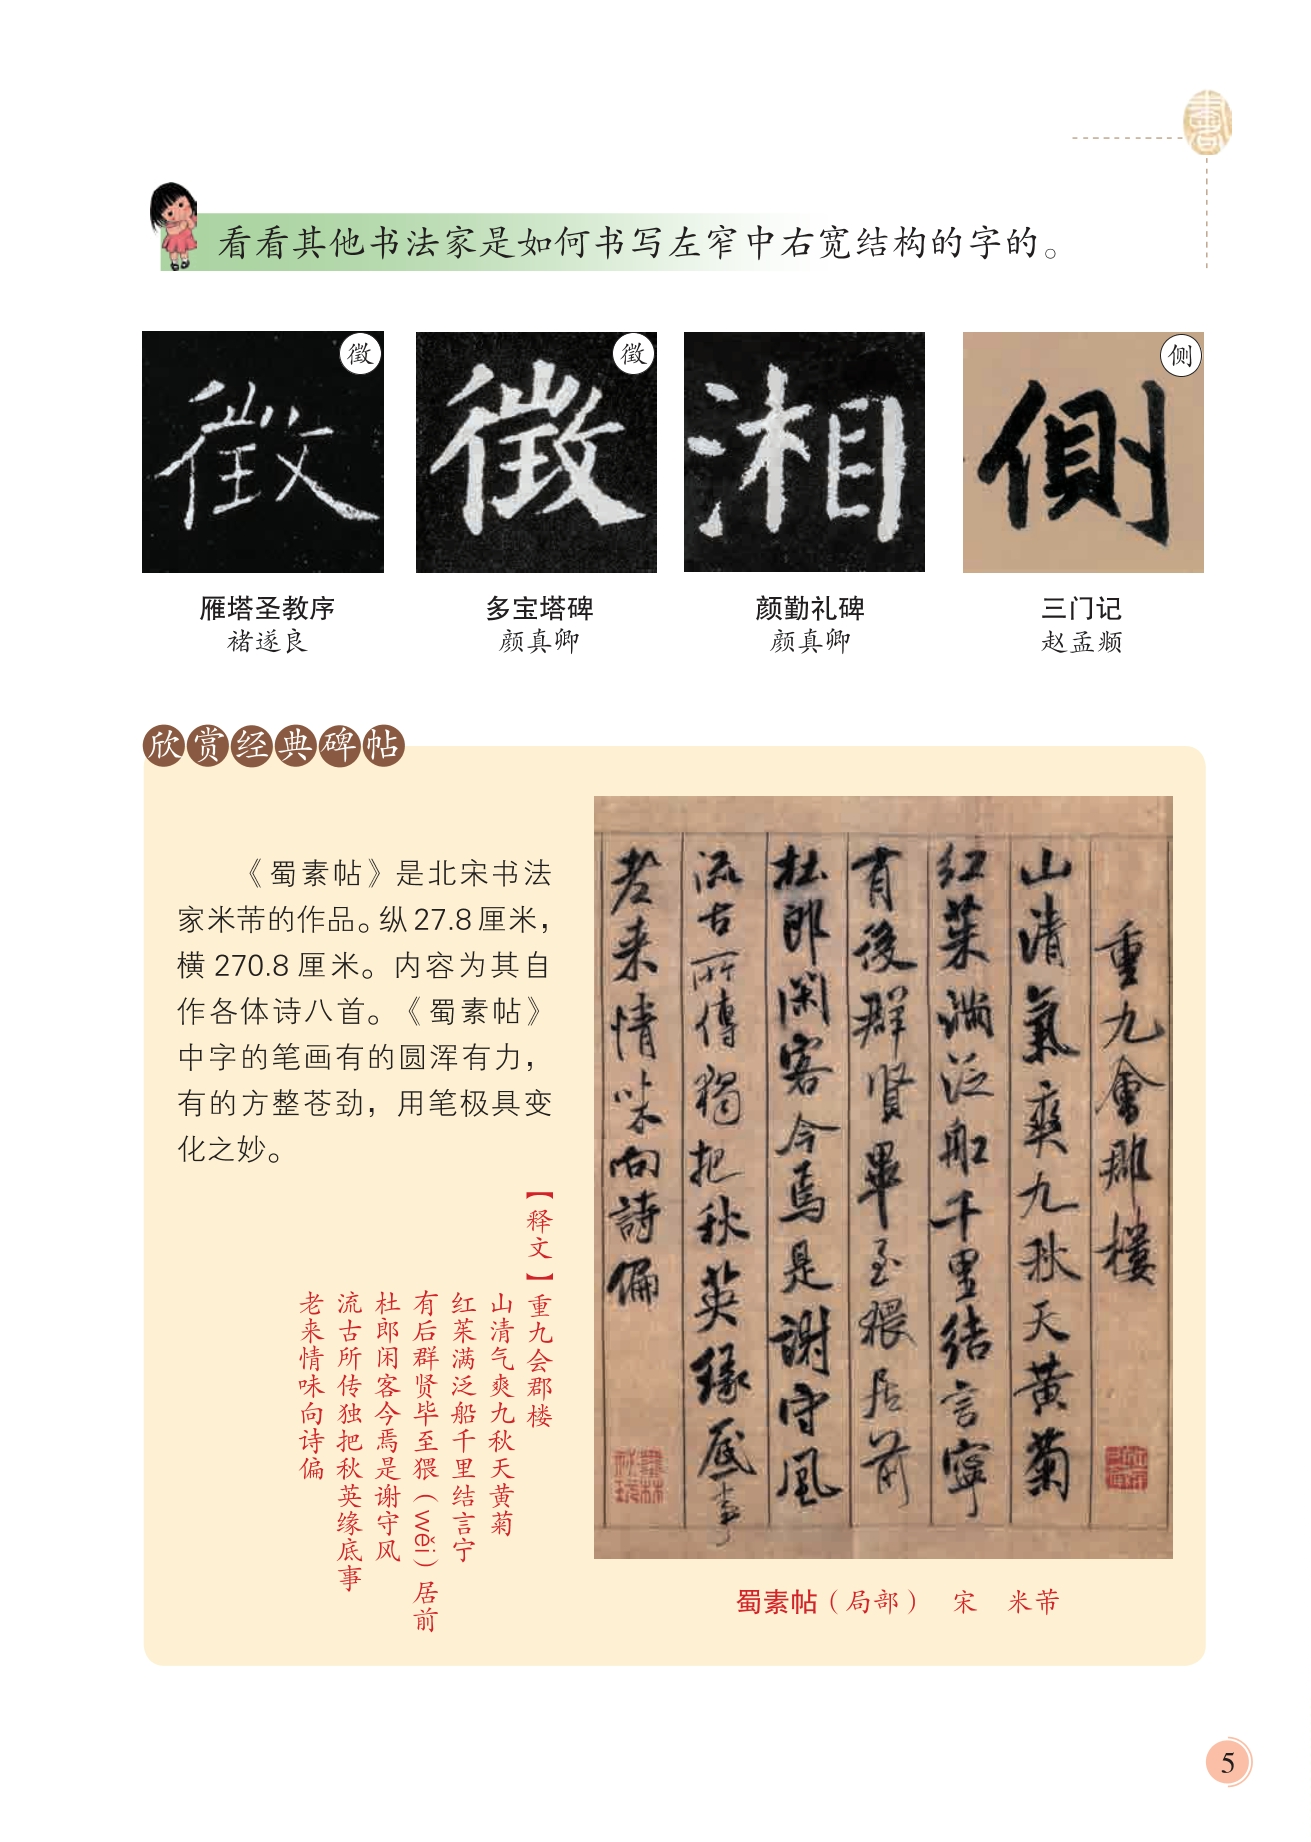 看看其他书法家是如何书写左窄中右宽结构的字的。
徵
徵
侧
徵
徵
湘
側
雁塔圣教序
褚遂良
多宝塔碑
颜真卿
颜勤礼碑
颜真卿
三门记
赵孟𫖯
欣赏经典碑帖
《蜀素帖》是北宋书法
家米芾的作品。纵27.8厘米，
横270.8厘米。内容为其自
作各体诗八首。《蜀素帖》
中字的笔画有的圆浑有力，
有的方整苍劲，用笔极具变
化之妙。
【释文】重九会郡楼
山清气爽九秋天黄菊
红茱满泛船千里结言宁
有后群贤毕至猥（wěi）居前
杜郎闲客今焉是谢守风
流古所传独把秋英缘底事
老来情味向诗偏
重九會郡樓
山清氣爽九秋天黄菊
红茱满泛船千里結言寧
有後群賢畢至猥居前
杜郎閑客今焉是謝守風
流古所傳獨把秋英緣底事
老来情味向詩偏
蜀素帖（局部） 宋 米芾
5